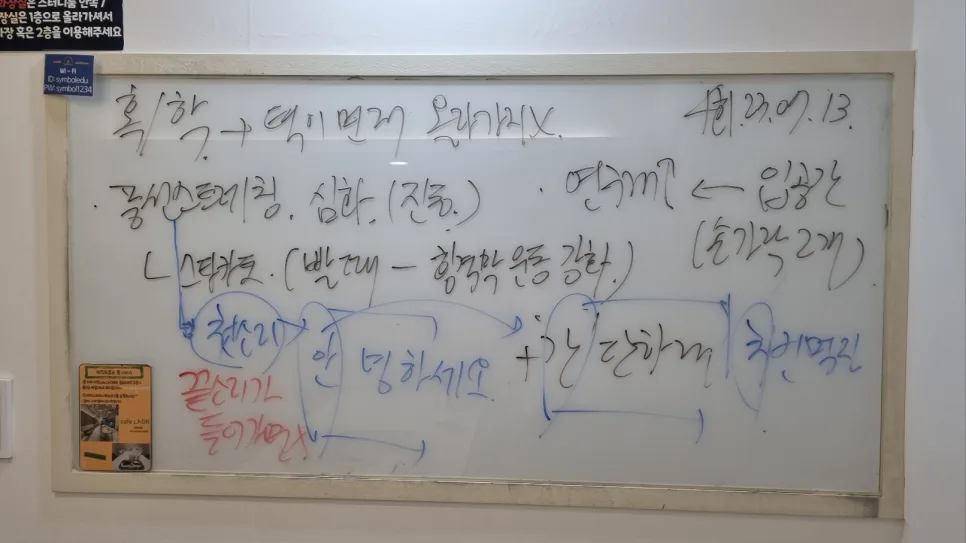 화장실은 스터디룸 안쪽
장실은 1층으로 올라가셔서
장 혹은 2층을 이용해주세요
Wi-Fi
ID: symboledu
PW: symbol1234
혹/학 → 턱이 면저 올라가지X.
4회. 23.07.13.
풍선스트레칭. 심화. (진동.)
· 연구개↑ ← 입공간
(손가락 2개)
ㄴ 스타카토. (빨대 - 횡격막 운동 강화.)
첫소리 안 녕하세요 + 간 단하게 저번먹진
끝소리가
들어가면X
cafe LADR